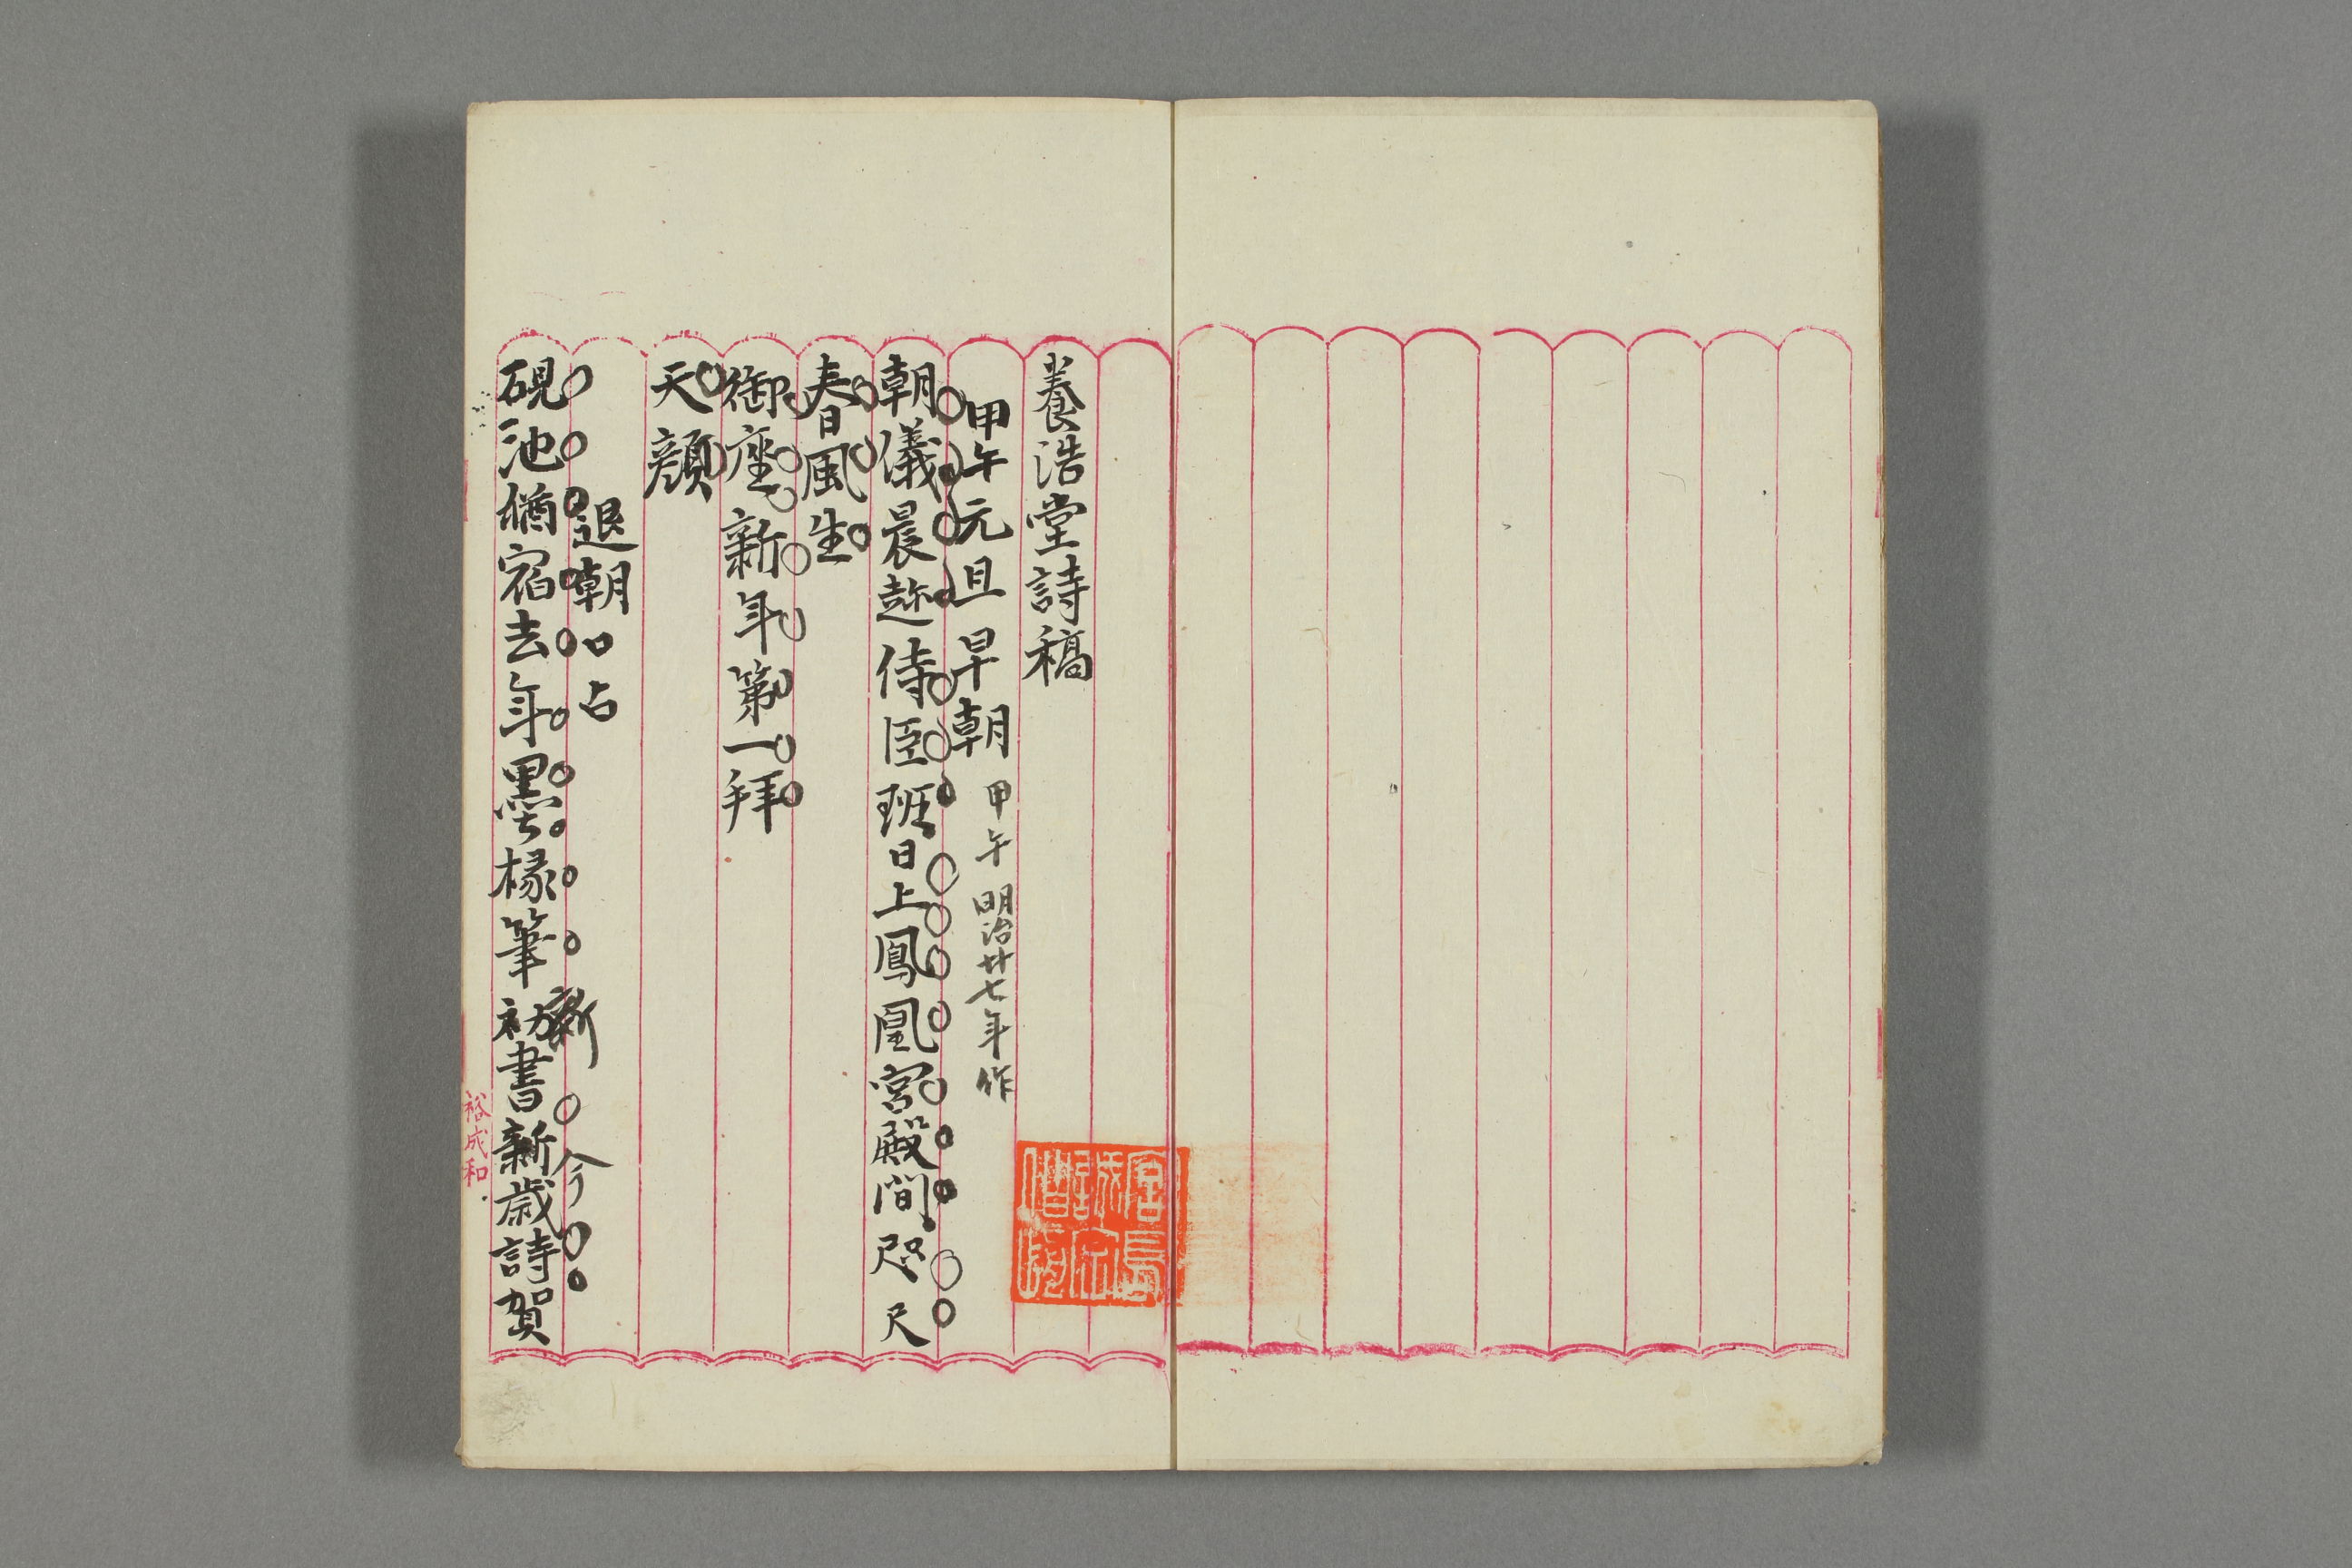 養浩堂詩稿
甲午元旦早朝 甲午 明治廿七年作
朝儀晨趁侍臣班日上鳳凰宮殿間咫尺
春風生
御座新年第一拜
天顔
退朝口占
硯池猶宿去年墨椽筆初書新歳詩賀
新
今
裕成和
宮島
誠一